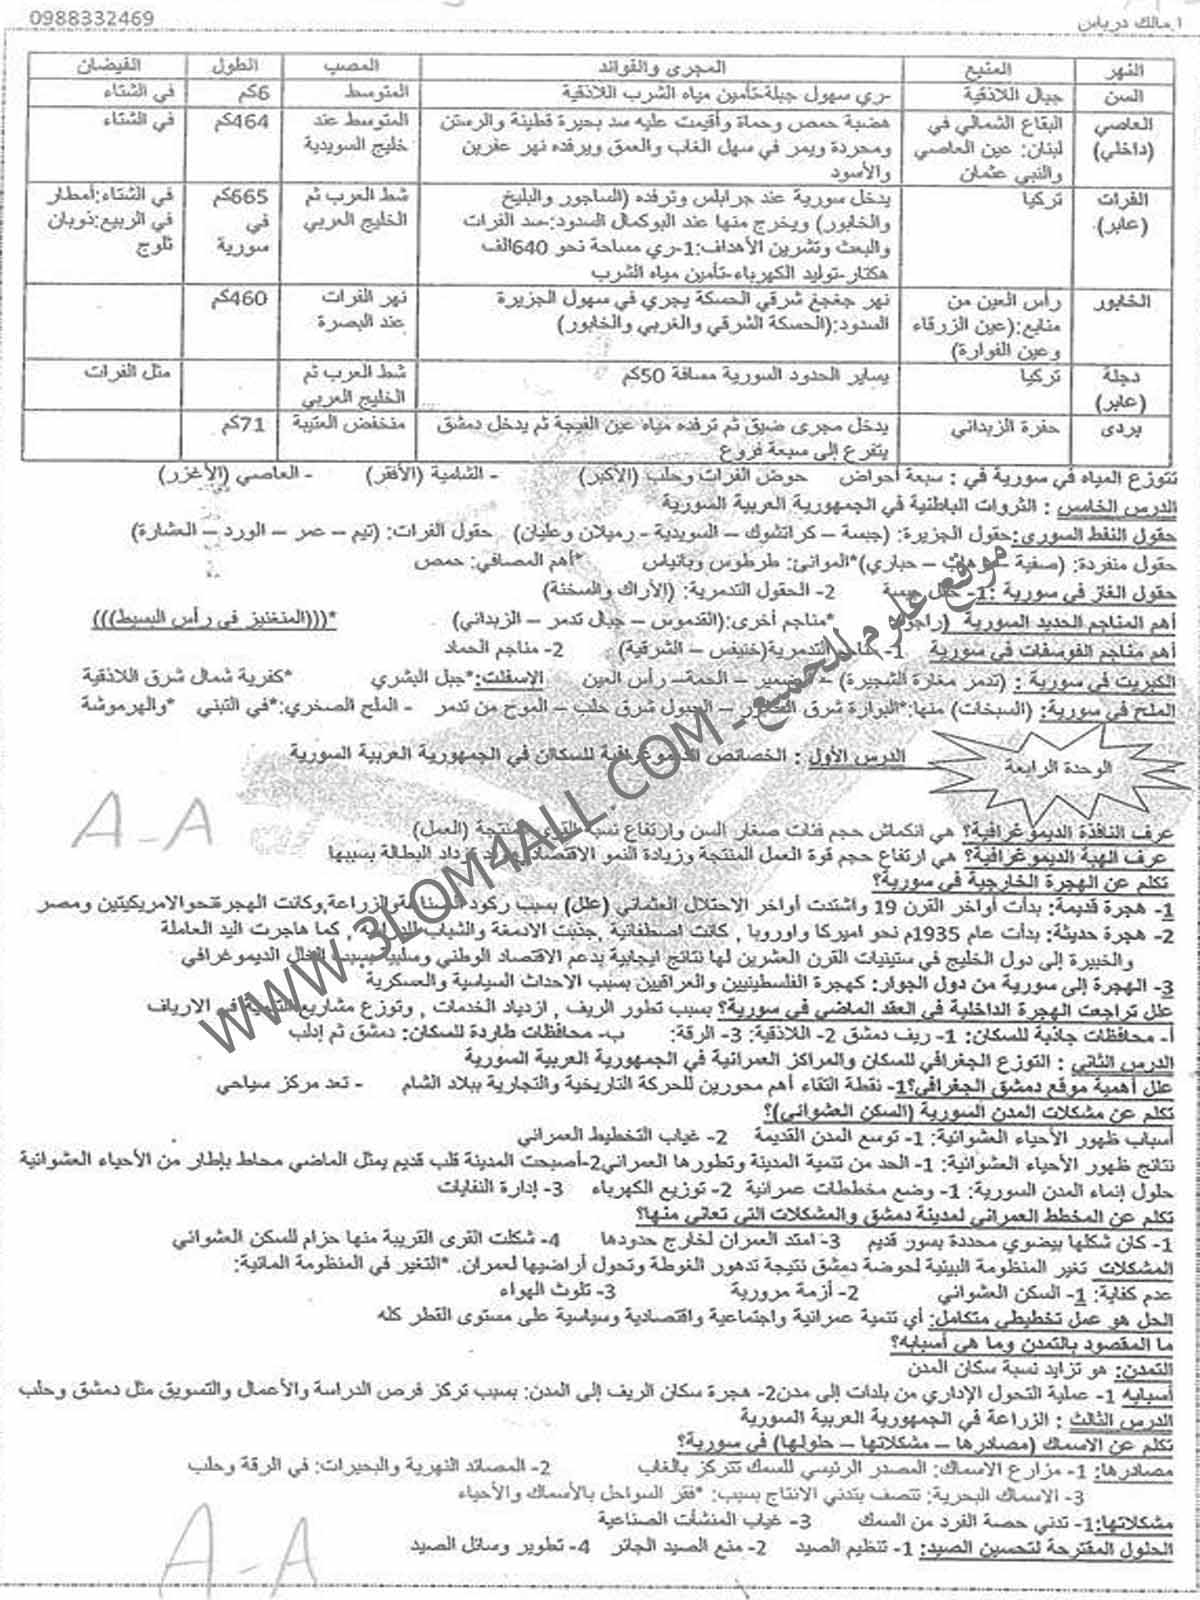 ا.مالك درباس
0988332469
النهر المنبع المجرى والفوائد المصب الطول الفيضان
السن جبال اللاذقية -ري سهول جبلة-تأمين مياه الشرب اللاذقية المتوسط 6كم في الشتاء
العاصي (داخلي) البقاع الشمالي في لبنان: عين العاصي والنبي عثمان هضبة حمص وحماة وأقيمت عليه سد بحيرة قطينة والرستن ومحردة ويمر في سهل الغاب والعمق ويرفده نهر عفرين والأسود المتوسط عند خليج السويدية 464كم في الشتاء
الفرات (عابر). تركيا يدخل سورية عند جرابلس وترفده (الساجور والبليخ والخابور) ويخرج منها عند البوكمال السدود:-سد الفرات والبعث وتشرين الأهداف:1-ري مساحة نحو 640الف هكتار-توليد الكهرباء-تأمين مياه الشرب شط العرب ثم الخليج العربي 665كم في سورية في الشتاء:أمطار في الربيع:ذوبان ثلوج
الخابور رأس العين من منابع:(عين الزرقاء وعين الفوارة) نهر جغجغ شرقي الحسكة يجري في سهول الجزيرة السدود:(الحسكة الشرقي والغربي والخابور) نهر الفرات عند البصرة 460كم
دجلة (عابر) تركيا يساير الحدود السورية مسافة 50كم شط العرب ثم الخليج العربي مثل الفرات
بردى حفرة الزبداني يدخل مجرى ضيق ثم ترفده مياه عين الفيجة ثم يدخل دمشق يتفرع إلى سبعة فروع منخفض العتيبة 71كم
تتوزع المياه في سورية في : سبعة أحواض حوض الفرات وحلب (الأكبر) - الشامية (الأفقر) - العاصي (الأغزر)
الدرس الخامس : الثروات الباطنية في الجمهورية العربية السورية
حقول النفط السوري:حقول الجزيرة: (جبسة – كراتشوك – السويدية - رميلان وعليان) حقول الفرات: (تيم – عمر – الورد – العشارة)
حقول منفردة: (صفية – – حباري)*الموانئ: طرطوس وبانياس *أهم المصافي: حمص
حقول الغاز في سورية :1- حقل جبسة 2- الحقول التدمرية: (الأراك والسخنة)
أهم المناجم الحديد السورية (راجو) *مناجم أخرى:(القدموس – جبال تدمر – الزبداني) *(((المنغنيز في رأس البسيط)))
أهم مناجم الفوسفات في سورية 1- مناجم التدمرية(خنيفس – الشرقية) 2- مناجم الحماد
الكبريت في سورية : (تدمر مغارة الشجيرة) – ضمير – الحمة– رأس العين الإسفلت:*جبل البشري *كفرية شمال شرق اللاذقية
الملح في سورية: (السبخات) منها:*البوارة شرق – الجبول شرق حلب – الموح من تدمر - الملح الصخري:*في التبني *والهرموشة
الوحدة الرابعة
الدرس الأول : الخصائص الديموغرافية للسكان في الجمهورية العربية السورية
A-A
عرف النافذة الديموغرافية؟ هي انكماش حجم فئات صغار السن وارتفاع نسبة القوى المنتجة (العمل)
عرف الهبة الديموغرافية؟ هي ارتفاع حجم قوة العمل المنتجة وزيادة النمو الاقتصادي تزداد البطالة بسببها
تكلم عن الهجرة الخارجية في سورية؟
1- هجرة قديمة: بدأت أواخر القرن 19 واشتدت أواخر الاحتلال العثماني (علل) بسبب ركود الصناعة والزراعة,وكانت الهجرةنحوالامريكيتين ومصر
2- هجرة حديثة: بدأت عام 1935م نحو اميركا واوروبا , كانت اصطفائية ,جذبت الادمغة والشباب للدراسة , كما هاجرت اليد العاملة
والخبيرة إلى دول الخليج في ستينيات القرن العشرين لها نتائج ايجابية بدعم الاقتصاد الوطني وسلبية بسبب الخلل الديموغرافي
3- الهجرة إلى سورية من دول الجوار: كهجرة الفلسطينيين والعراقيين بسبب الاحداث السياسية والعسكرية
علل تراجعت الهجرة الداخلية في العقد الماضي في سورية؟ بسبب تطور الريف , ازدياد الخدمات , وتوزع مشاريع التنمية في الارياف
أ- محافظات جاذبة للسكان: 1- ريف دمشق 2- اللاذقية: 3- الرقة: ب- محافظات طاردة للسكان: دمشق ثم إدلب
الدرس الثاني : التوزع الجغرافي للسكان والمراكز العمرانية في الجمهورية العربية السورية
علل أهمية موقع دمشق الجغرافي؟1- نقطة التقاء أهم محورين للحركة التاريخية والتجارية ببلاد الشام - تعد مركز سياحي
تكلم عن مشكلات المدن السورية (السكن العشوائي)؟
أسباب ظهور الأحياء العشوائية: 1- توسع المدن القديمة 2- غياب التخطيط العمراني
نتائج ظهور الأحياء العشوائية: 1- الحد من تنمية المدينة وتطورها العمراني2-أصبحت المدينة قلب قديم يمثل الماضي محاط بإطار من الأحياء العشوائية
حلول إنماء المدن السورية: 1- وضع مخططات عمرانية 2- توزيع الكهرباء 3- إدارة النفايات
تكلم عن المخطط العمراني لمدينة دمشق والمشكلات التي تعاني منها؟
1- كان شكلها بيضوي محددة بسور قديم 3- امتد العمران لخارج حدودها 4- شكلت القرى القريبة منها حزام للسكن العشوائي
المشكلات تغير المنظومة البيئية لحوضة دمشق نتيجة تدهور الغوطة وتحول أراضيها لعمران. *التغير في المنظومة المائية:
عدم كفاية: 1- السكن العشوائي 2- أزمة مرورية 3- تلوث الهواء
الحل هو عمل تخطيطي متكامل: أي تنمية عمرانية واجتماعية واقتصادية وسياسية على مستوى القطر كله
ما المقصود بالتمدن وما هي أسبابه؟
التمدن: هو تزايد نسبة سكان المدن
أسبابه 1- عملية التحول الإداري من بلدات إلى مدن2- هجرة سكان الريف إلى المدن: بسبب تركز فرص الدراسة والأعمال والتسويق مثل دمشق وحلب
الدرس الثالث : الزراعة في الجمهورية العربية السورية
تكلم عن الاسماك (مصادرها – مشكلاتها – حلولها) في سورية؟
مصادرها: 1- مزارع الاسماك: المصدر الرئيسي للسمك تتركز بالغاب 2- المصائد النهرية والبحيرات: في الرقة وحلب
3- الاسماك البحرية: تتصف بتدني الانتاج بسبب: *فقر السواحل بالأسماك والأحياء
مشكلاتها:1- تدني حصة الفرد من السمك 3- غياب المنشآت الصناعية
الحلول المقترحة لتحسين الصيد: 1- تنظيم الصيد 2- منع الصيد الجائر 4- تطوير وسائل الصيد
A-A
WWW.3LOM4ALL.COM - موقع علوم للجميع